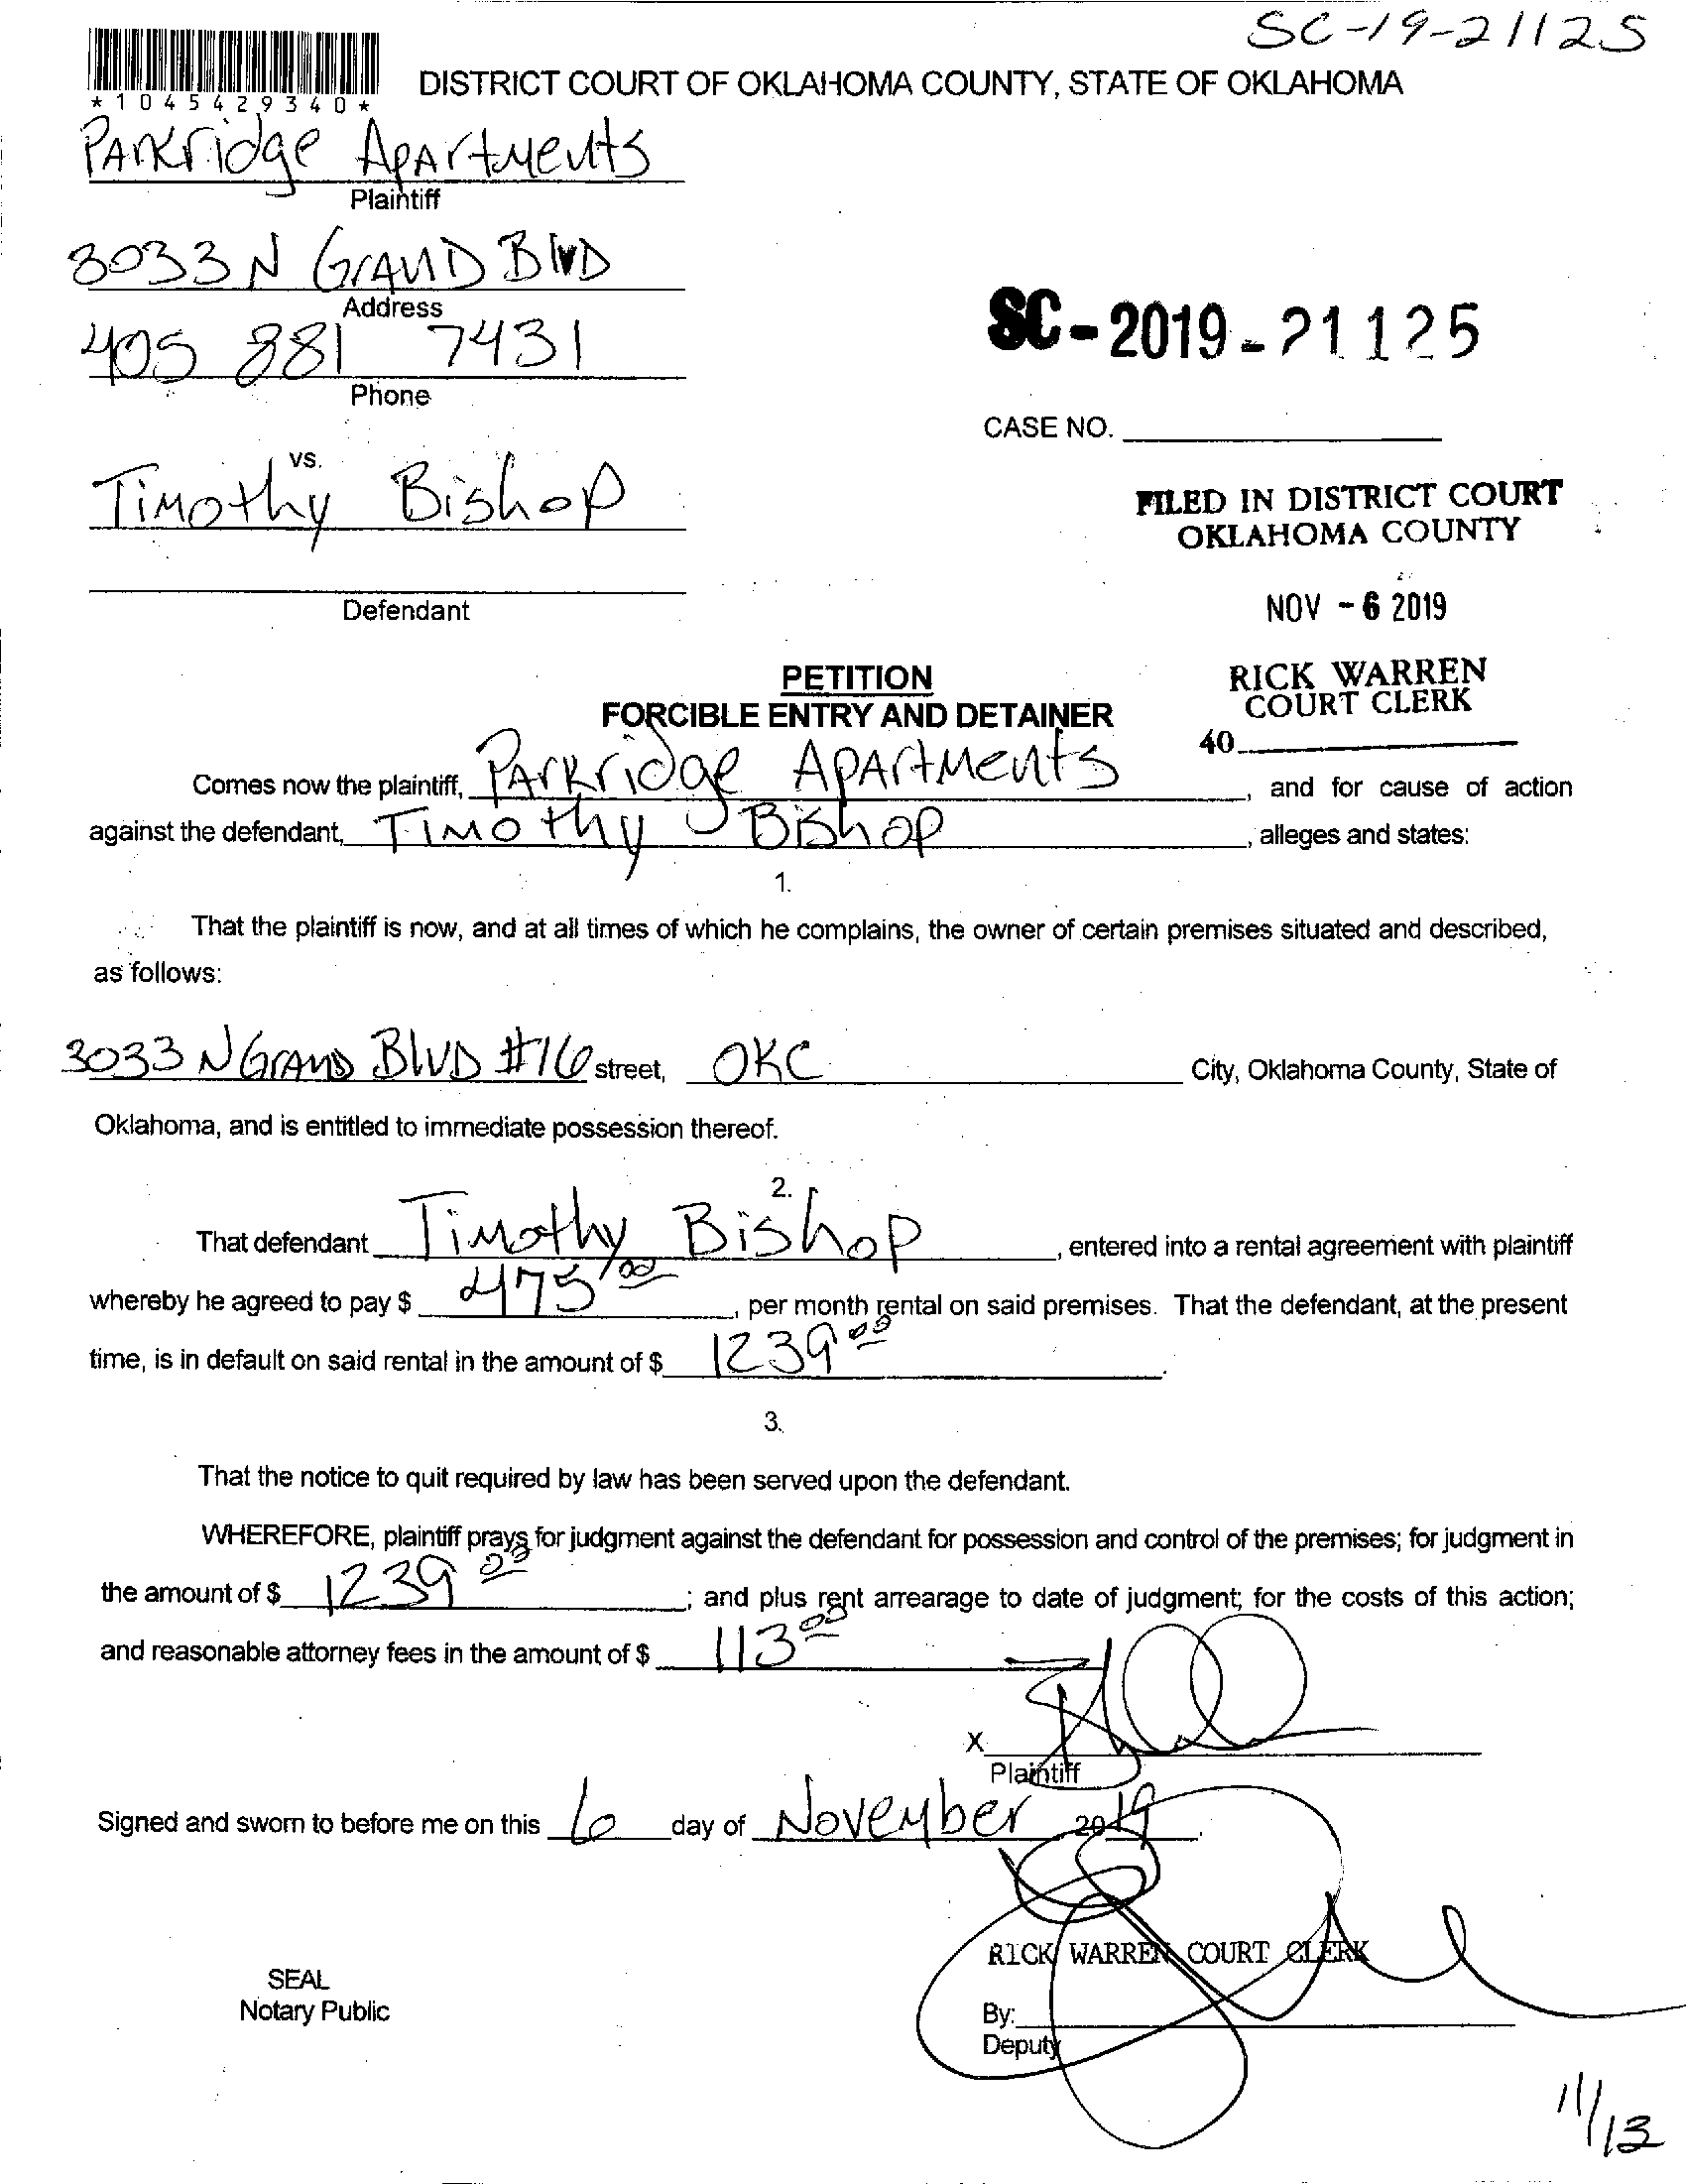 SC-19-21125
*1045429340*
DISTRICT COURT OF OKLAHOMA COUNTY, STATE OF OKLAHOMA
Parkridge Apartments
Plaintiff
3033 N Grand Blvd
Address
405 881 7431
Phone
SC-2019-21125
CASE NO.
vs.
Timothy Bishop
Defendant
FILED IN DISTRICT COURT
OKLAHOMA COUNTY
NOV - 6 2019
RICK WARREN
COURT CLERK
40
PETITION
FORCIBLE ENTRY AND DETAINER
Comes now the plaintiff, Parkridge Apartments, and for cause of action
against the defendant, Timothy Bishop, alleges and states:
1.
That the plaintiff is now, and at all times of which he complains, the owner of certain premises situated and described,
as follows:
3033 N Grand Blvd #16 street, OKC City, Oklahoma County, State of
Oklahoma, and is entitled to immediate possession thereof.
2.
That defendant Timothy Bishop, entered into a rental agreement with plaintiff
whereby he agreed to pay $ 475.00, per month rental on said premises. That the defendant, at the present
time, is in default on said rental in the amount of $ 1239 00.
3.
That the notice to quit required by law has been served upon the defendant.
WHEREFORE, plaintiff prays for judgment against the defendant for possession and control of the premises; for judgment in
the amount of $ 1239 00; and plus rent arrearage to date of judgment; for the costs of this action;
and reasonable attorney fees in the amount of $ 113 00
X
Plaintiff
Signed and sworn to before me on this 6 day of November 2019.
RICK WARREN COURT CLERK
SEAL
Notary Public
By:
Deputy
11/13